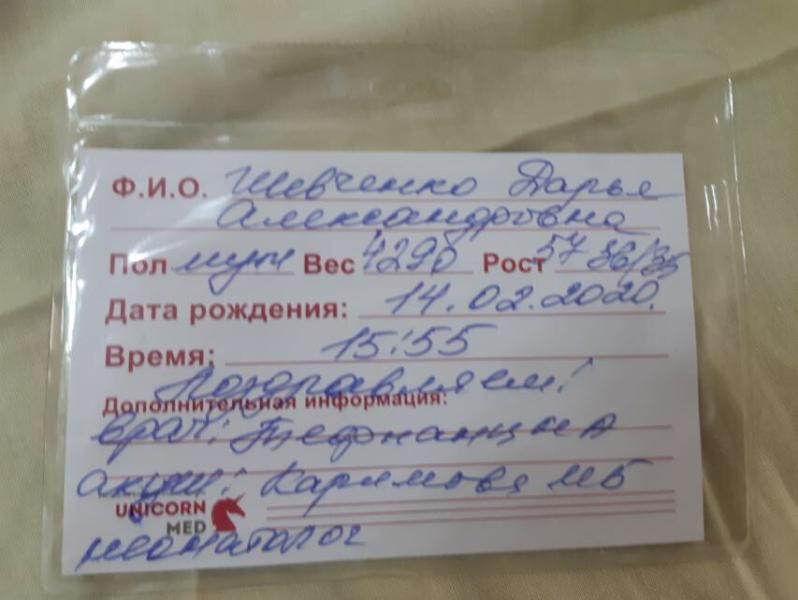 Ф.И.О. Шевченко Дарья
Александровна
Пол муж Вес 4290 Рост 57 36/35
Дата рождения: 14.02.2020.
Время: 15:55
Поздравляем!
Дополнительная информация:
врач:
акуш: Каримова МБ
UNICORN
MED
неонатолог